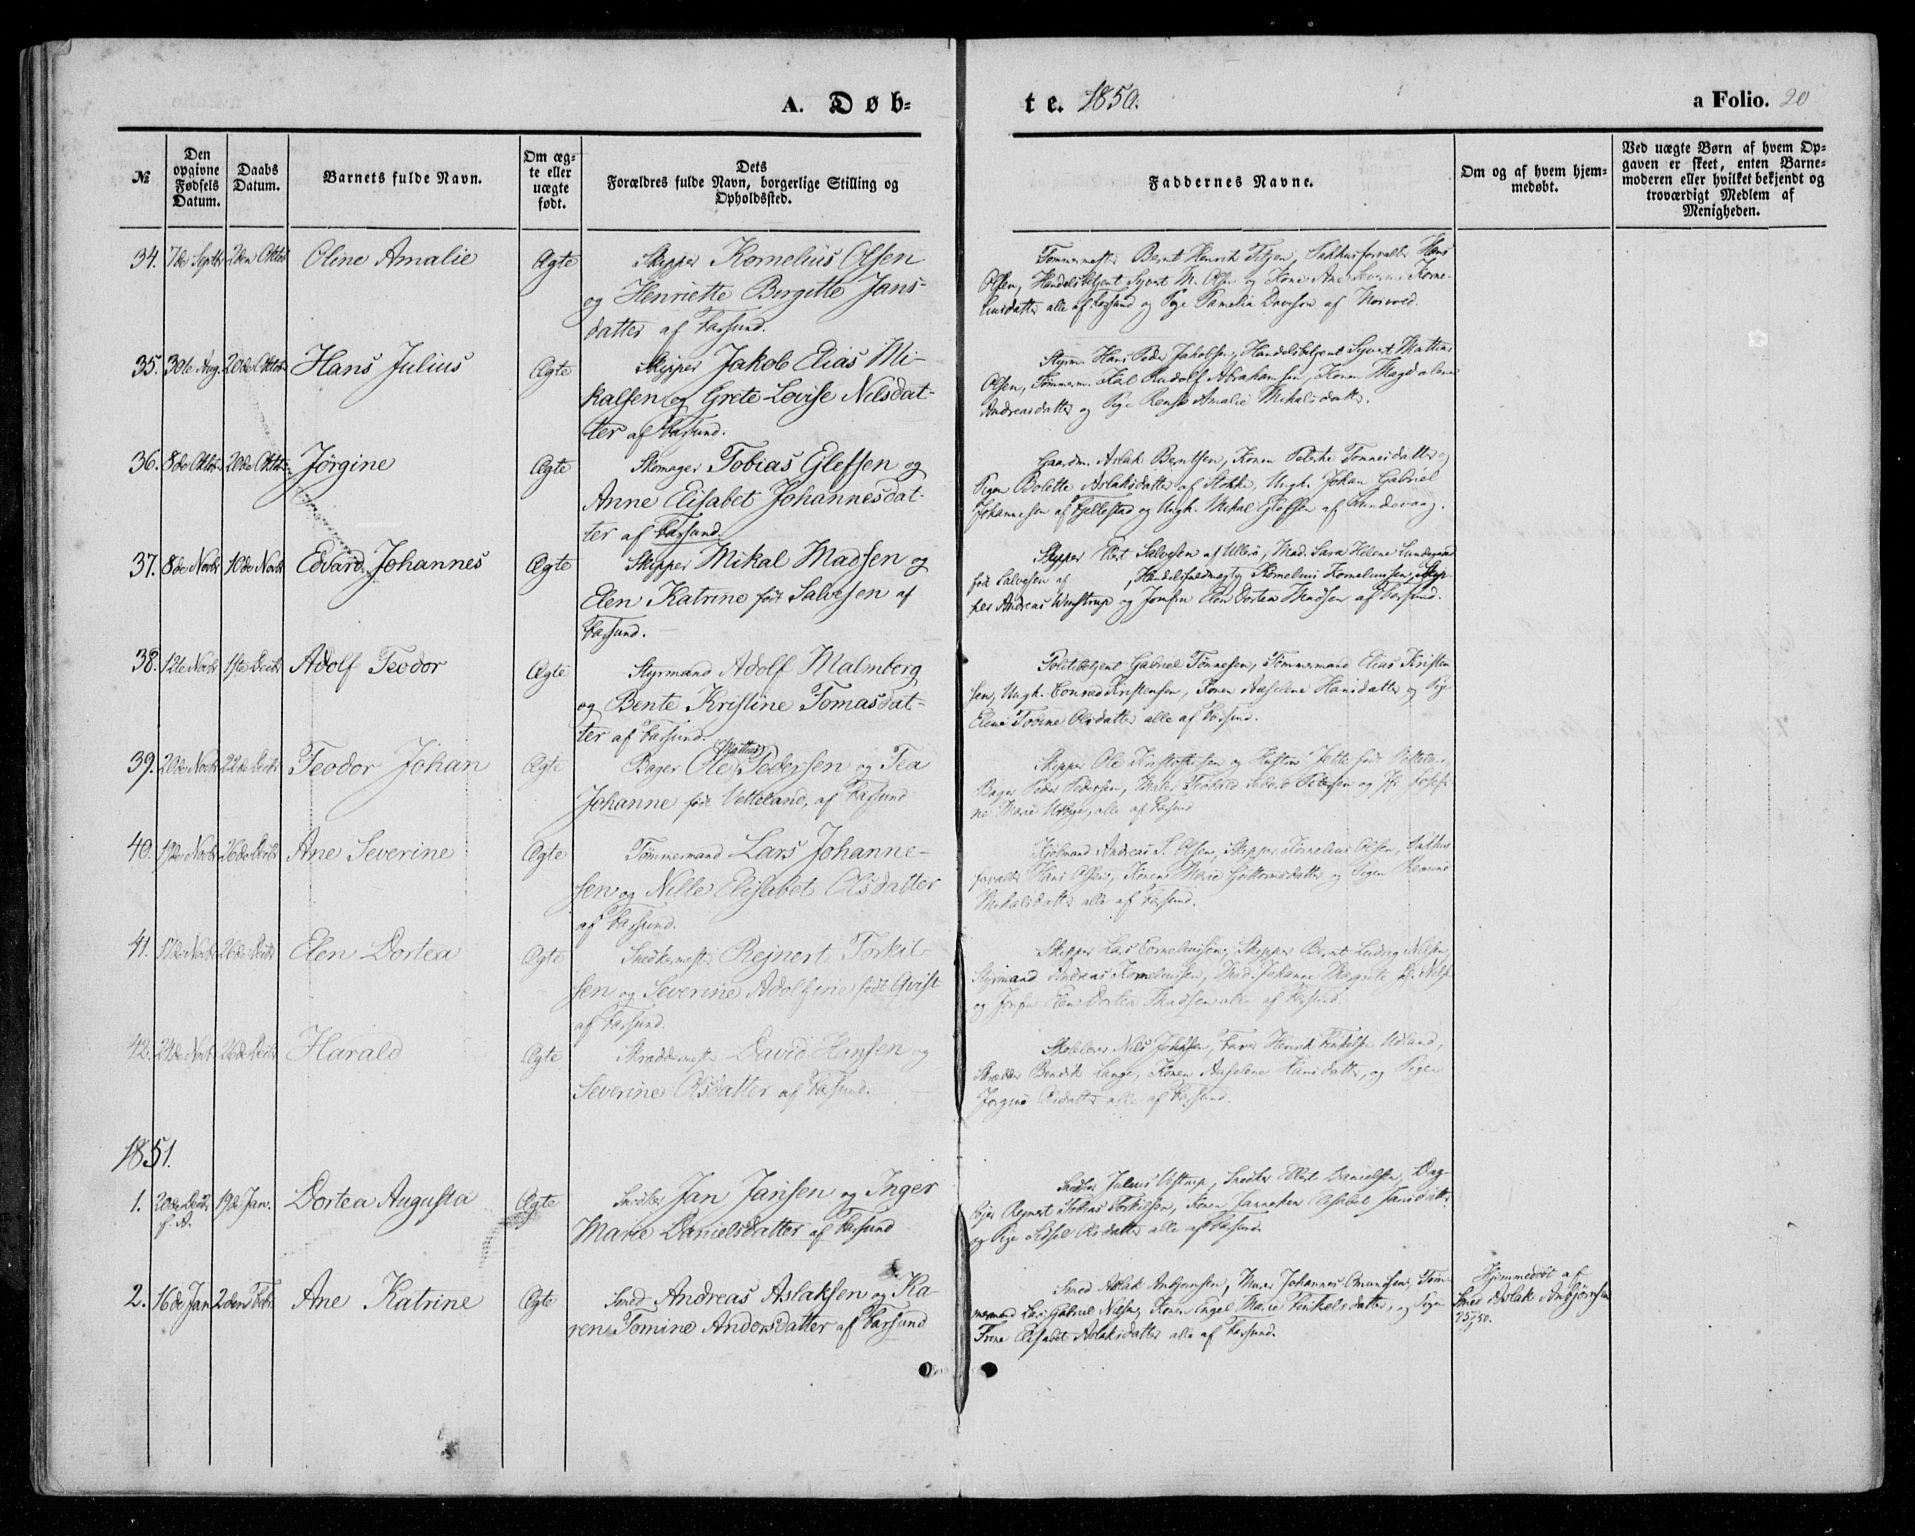 A. Døb-
te. 1850.
a Folio. 20
№
Den opgivne Fødsels Datum.
Daabs Datum.
Barnets fulde Navn.
Om ægte eller uægte født.
Dets
Forældres fulde Navn, borgerlige Stilling og
Opholdssted.
Faddernes Navne.
Om og af hvem hjemmedøbt.
Ved uægte Børn af hvem Opgaven er skeet, enten Barnemoderen eller hvilket bekjendt og troværdigt Medlem af Menigheden.
34. 7de Septbr 2den Oktbr Oline Amalie Ægte Skipper Kornelius Olsen
og Henriette Birgitte Jans-
datter af Farsund.
Olsen, Handelsbetjent Syvert M. Olsen og Kone Ane Korne-
liusdatter alle af Farsund og Pige
35. 30te Aug. 20de Oktbr Hans Julius Ægte Skipper Jakob Elias Mi-
kalsen og Grete Lovise Nilsdat-
ter af Farsund.
Styrm. Hans Peder Jakobsen, Handelsbetjent Syvert Mattias
Olsen, Tømmerm. Karl Rudolf Abrahamsen, Konen Magdalene
Andreasdatter og Pige Amalie Mikalsdatter.
36. 8de Oktbr 20de Oktbr Jörgine Ægte Skomager Tobias Eilefsen og
Anne Elisabet Johannesdat-
ter af Farsund.
Gaardm. Aslak Berntsen, Konen Tønnesdatter og
Pigen Bolette Aslaksdatter af Stokke, Ungk. Johan Gabriel
Johannesen af og Ungk. Mikal af
37. 8de Novbr 10de Novbr Edvard Johannes Ægte Skipper Mikal Madsen og
Elen Katrine født Salvesen af
Farsund.
Skipper Salvesen af Ullerö, Mad. Sara Helene Lundegaard
født Salvesen af , Handelsfuldmægtig Kornelius Korneliussen, Skip-
per Andreas og Jomfru Elen Dortea Madsen af Farsund.
38. 12te Novbr 1ste Decbr Adolf Teodor Ægte Styrmand Adolf Malmberg
og Bente Kristine Tomasdat-
ter af Farsund.
Politibetjent Gabriel Tönnesen, Tömmermand Elias Kristen-
sen, Ungk. Conrad Kristensen, Konen Aaselene Hansdatter og Pige
Elene Tobine Olsdatter alle af Farsund.
39. 20de Novbr 22de Decbr Teodor Johan Ægte Bager Ole (Mattias) Pedersen og Tea
Johanne født Vetteland, af Farsund
Skipper Ole og Hustru Jette født
Bager Peder Pedersen, og
ne Marie alle af Farsund
40. Novbr 26de Decbr Ane Severine Ægte Tømmermand Lars Johanne-
sen og Nille Elisabet Olsdatter
af Farsund.
Andreas S. Olsen, Skipper Kornelius Olsen,
Hans Olsen, Konen Marie Guttormsdatter og Pigen
Mikalsdatter alle af Farsund.
41. 17de Novbr 26de Decbr Elen Dortea Ægte Snedkermester Rejnert Torkil-
sen og Severine Adolfine født Qvist
af Farsund.
Skipper Lars Corneliussen, Skipper Bernt Ludvig Nilsen,
Styrmand Andreas Korneliussen, Mad. Johanne
og Jomfru Elen Dortea Madsen alle af Farsund
42. 24de Novbr 26de Decbr Harald Ægte Skræddermester David Hansen og
Severine Olsdatter af Farsund.
Skolelærer Nils Johnsen, Farver Henrik Udland,
Skrædder Bendik Lange, Konen Aaselene Hansdatter, og Pigen
Jørgine Olsdatter alle af Farsund.
1851.
1. 20de Decbr f. A. 19de Jan. Dortea Augusta Ægte Snedker Jan Jansen og Inger
Marie Danielsdatter af Farsund
Snedker Julius Snedker Elert Danielsen,
Rejnert Tobias Torkilsen, Konen Hanneken Elisabet Jansdatter
og Pige Sidsel Olsdatter alle af Farsund.
2. 16de Jan. 2den Febr. Ane Katrine Ægte Smed Andreas Aslaksen og Ka-
ren Tomine Andorsdatter af Farsund
Smed Aslak Anbjørnsen, Murer Johannes Omundsen, Töm-
mermand Lars Gabriel Nilsen, Konen Engel Marie Torkelsdatter, og Pigen
Trine Elisabet Aslaksdatter alle af Farsund.
Hjemmedøbt af
Smed Aslak Anbjørnsen